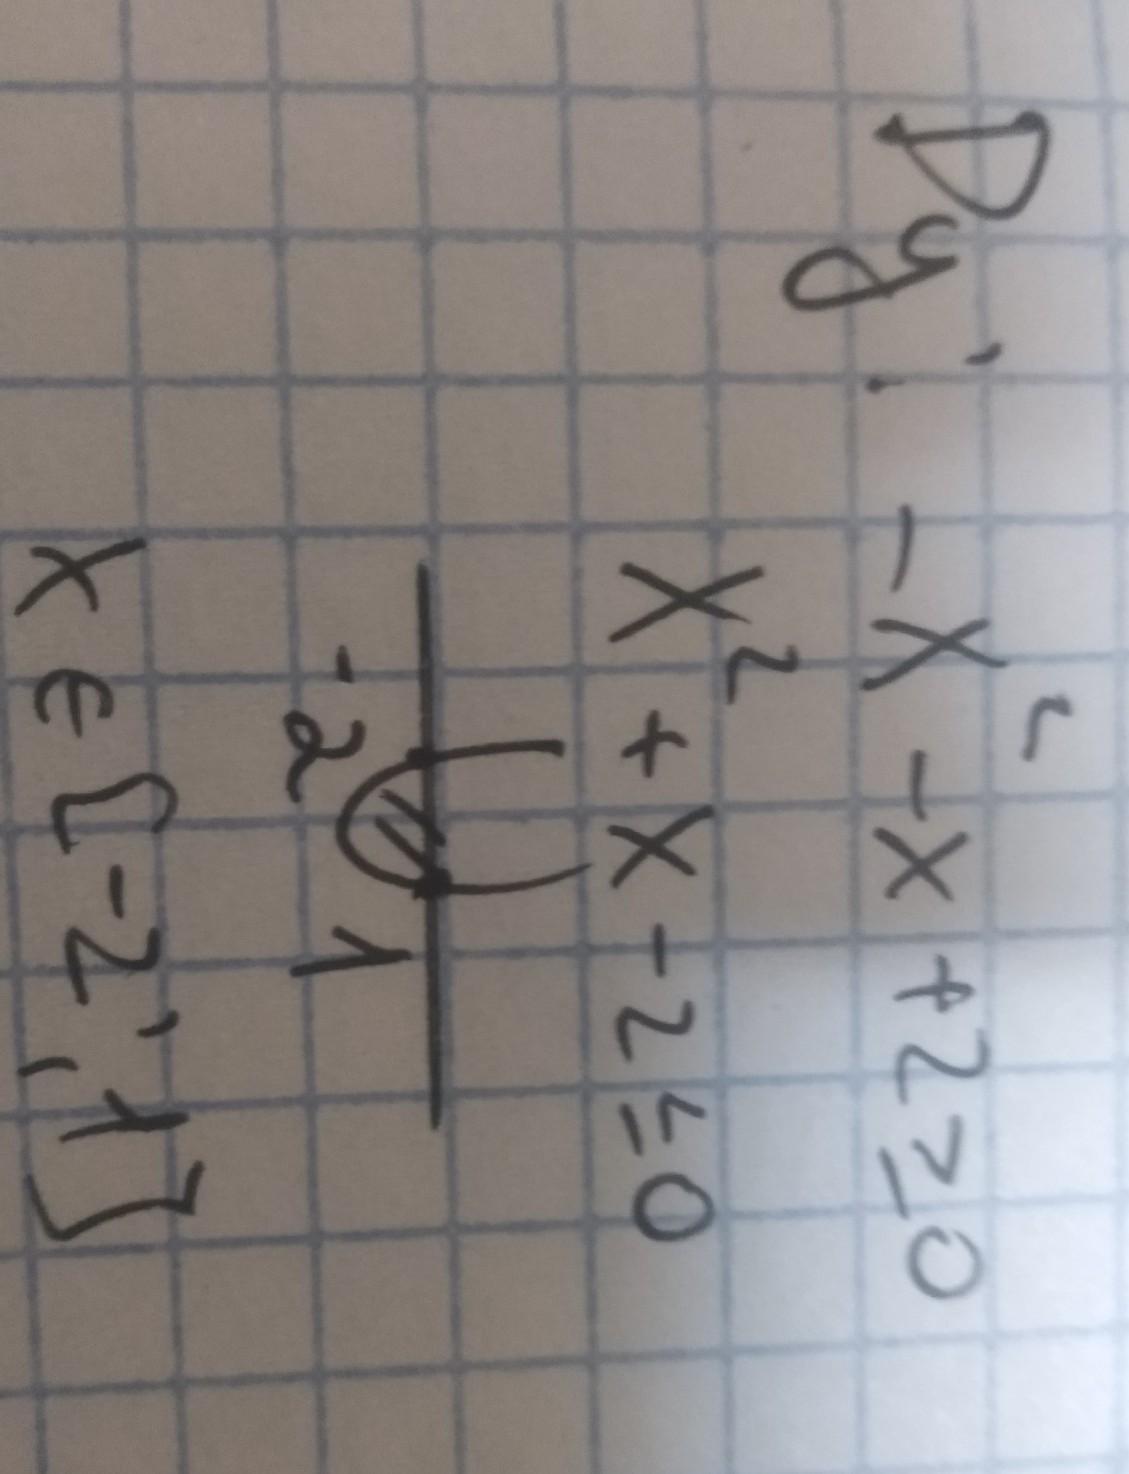 Dy: -x² -x+2≥0
x²+x-2≤0
-2 1
x∈[-2;1]